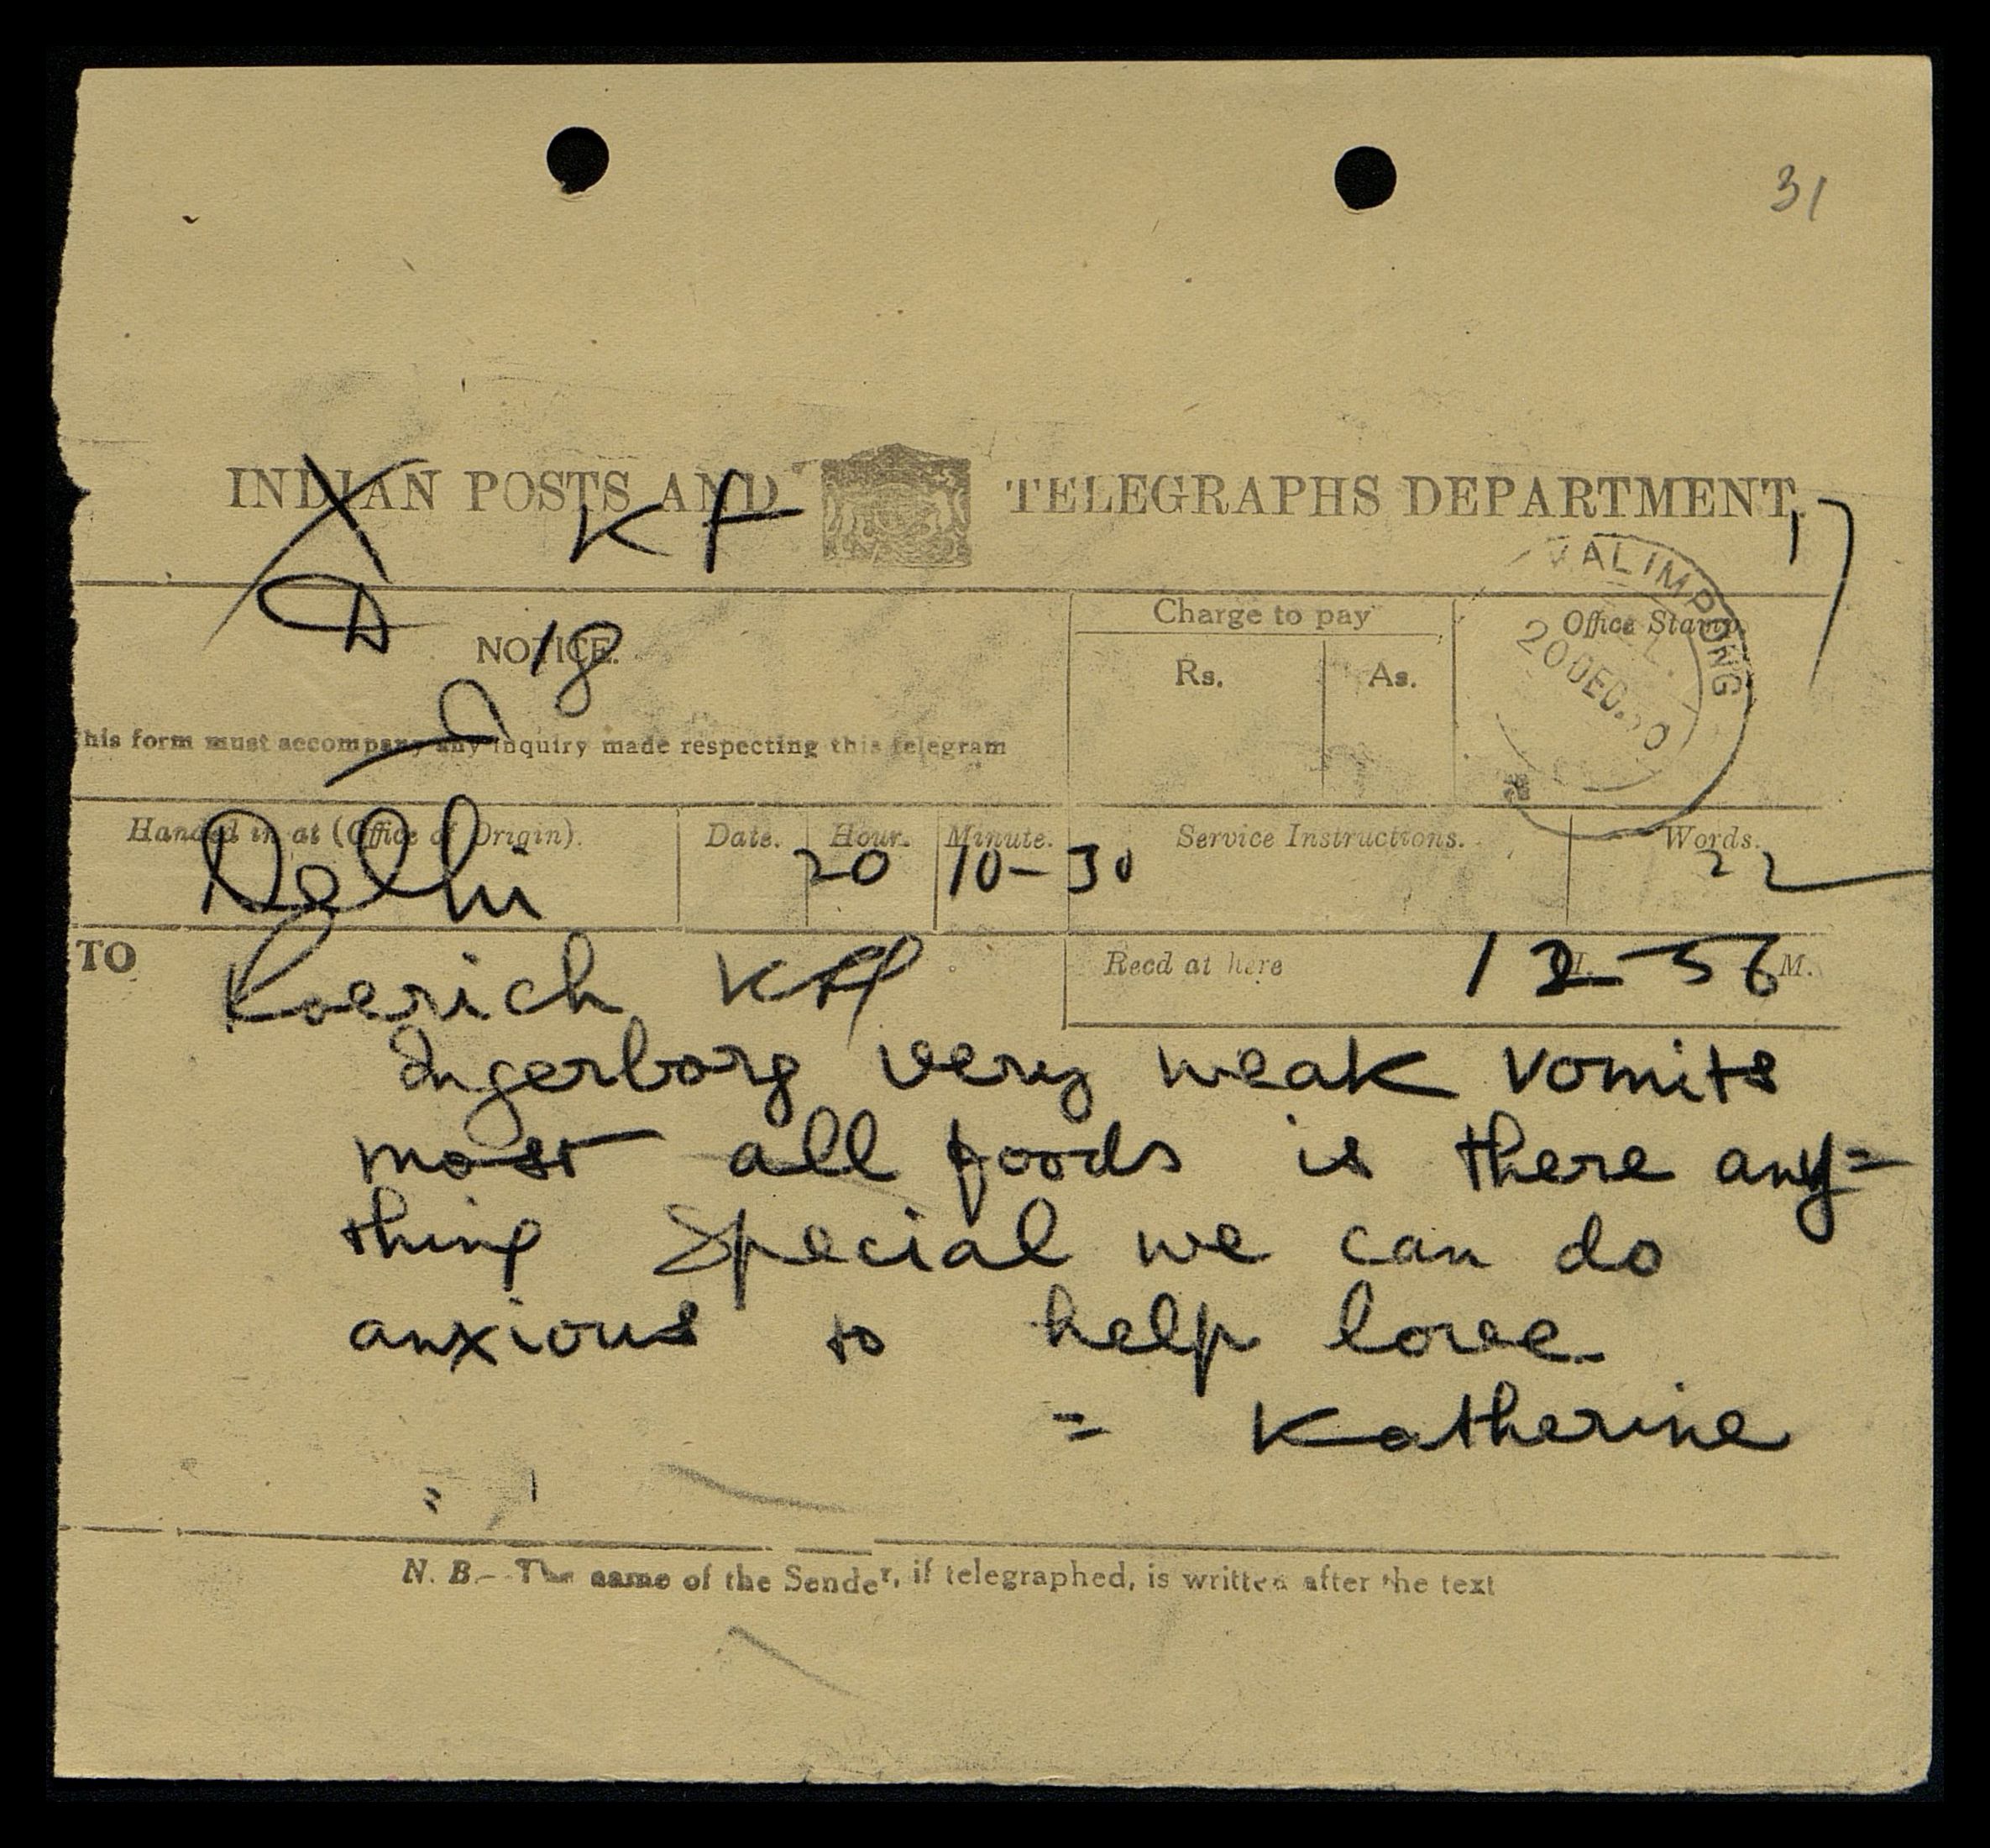 31
INDIAN POSTS AND TELEGRAPHS DEPARTMENT.
X KF 17
D 18
NOTICE.
Charge to pay
Rs. As.
Office Stamp
KALIMPONG
20 DEC.50
his form must accompany any inquiry made respecting this telegram
Handed in at (Office of Origin). Date. Hour. Minute. Service Instructions. Words.
Delhi 20 10-30 22
TO Roerich Recd at here 12-56 M.
Ingerborg very weak vomits
most all foods is there any=
thing special we can do
anxious to help love
= Katherine
N. B.- The name of the Sender, if telegraphed, is written after the text